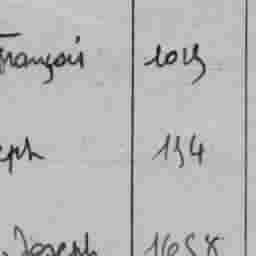 François 1015
eph 154
Joseph 1658